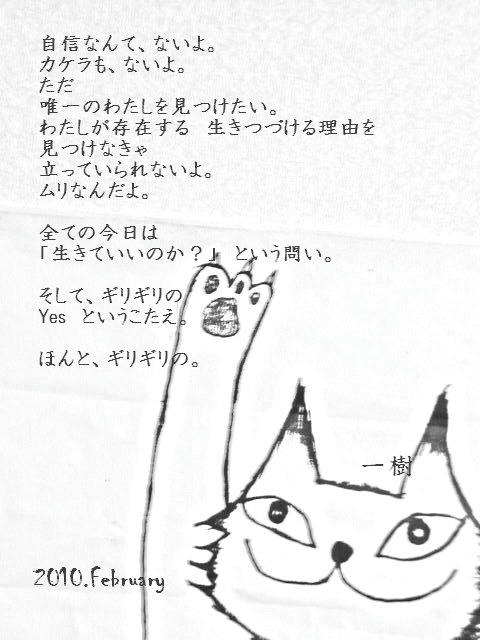 自信なんて、ないよ。
カケラも、ないよ。
ただ
唯一のわたしを見つけたい。
わたしが存在する　生きつづける理由を
見つけなきゃ
立っていられないよ。
ムリなんだよ。
全ての今日は
「生きていいのか？」　という問い。
そして、ギリギリの
Yes　というこたえ。
ほんと、ギリギリの。
一樹
2010.February